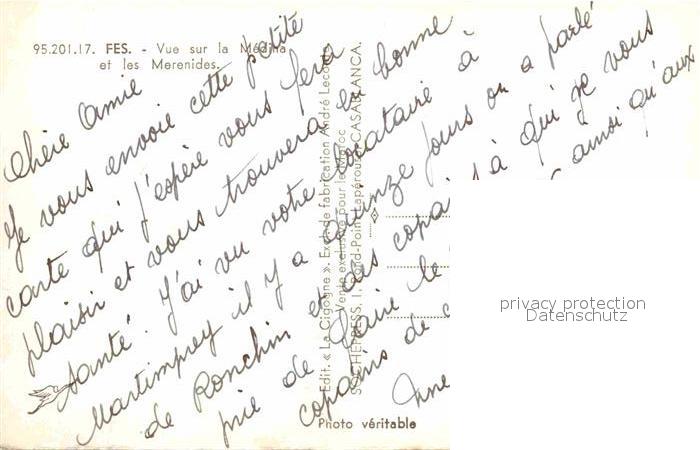 95.201.17. FES. - Vue sur la Médina
et les Merenides.
Chère Amie
Je vous envoie cette petite
carte qui j'espère vous fera
plaisir et vous trouvera en bonne
santé. J'ai vu votre locataire à
Martimprey il y a quinze jours on a parlé
de Ronchin et des copa à qui je vous
prie de faire le ainsi qu'aux
copains de
Edit. « La Cigogne ». Excl. de fabrication André Leconte
Vente exclusive pour le Maroc
SOCHEPRESS. 1, Rond-Point Lapérouse, CASABLANCA.
Photo véritable
privacy protection
Datenschutz